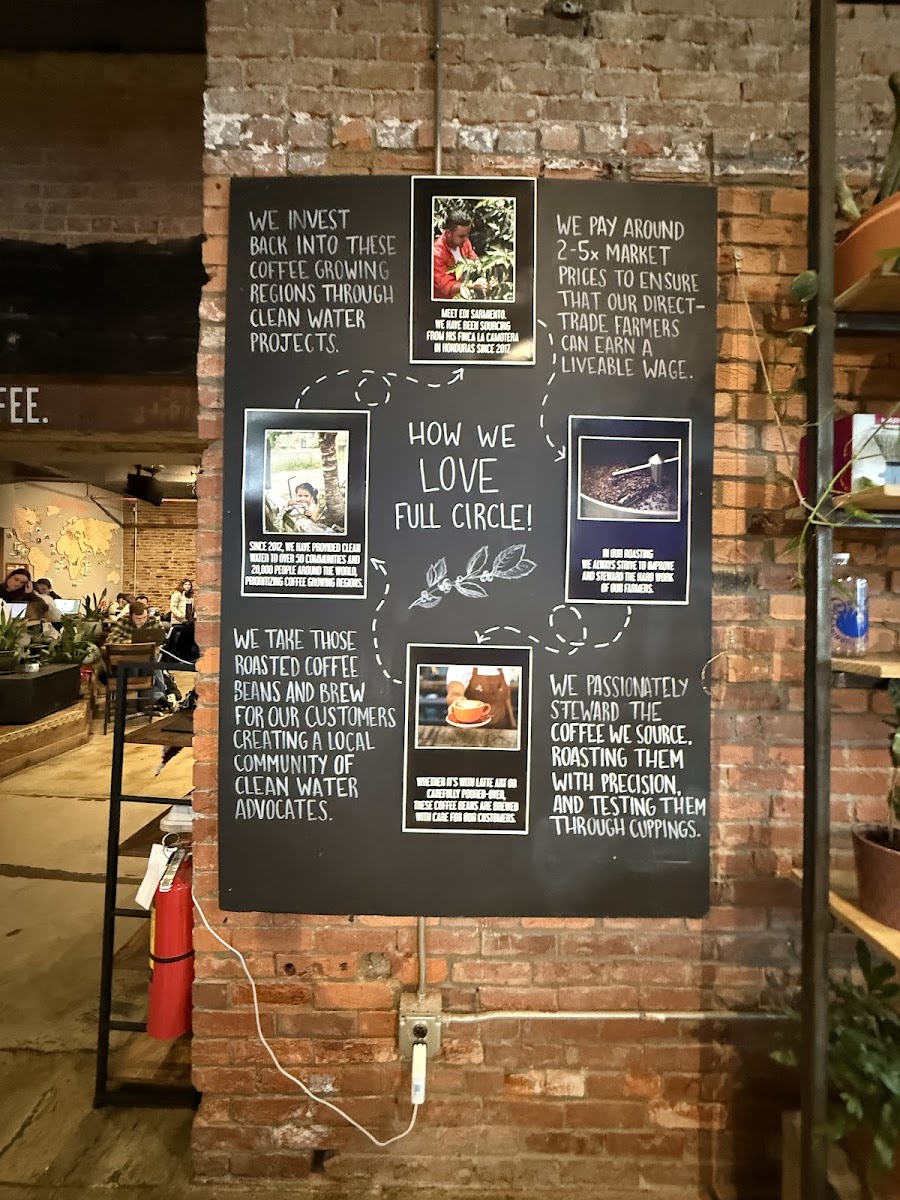 WE INVEST
BACK INTO THESE
COFFEE GROWING
REGIONS THROUGH
CLEAN WATER
PROJECTS.
MEET EDI SARMIENTO.
WE HAVE BEEN SOURCING
FROM HIS FINCA LA CAMOTERA
IN HONDURAS SINCE 2017.
WE PAY AROUND
2-5x MARKET
PRICES TO ENSURE
THAT OUR DIRECT-
TRADE FARMERS
CAN EARN A
LIVEABLE WAGE.
FEE.
HOW WE
LOVE
FULL CIRCLE!
SINCE 2012, WE HAVE PROVIDED CLEAN
WATER TO OVER 50 COMMUNITIES AND
20,000 PEOPLE AROUND THE WORLD,
PRIORITIZING COFFEE GROWING REGIONS.
IN OUR ROASTING
WE ALWAYS STRIVE TO IMPROVE
AND STEWARD THE HARD WORK
OF OUR FARMERS.
WE TAKE THOSE
ROASTED COFFEE
BEANS AND BREW
FOR OUR CUSTOMERS
CREATING A LOCAL
COMMUNITY OF
CLEAN WATER
ADVOCATES.
WHETHER IT'S WITH LATTE ART OR
CAREFULLY POURED-OVER,
THESE COFFEE BEANS ARE BREWED
WITH CARE FOR OUR CUSTOMERS.
WE PASSIONATELY
STEWARD THE
COFFEE WE SOURCE,
ROASTING THEM
WITH PRECISION,
AND TESTING THEM
THROUGH CUPPINGS.